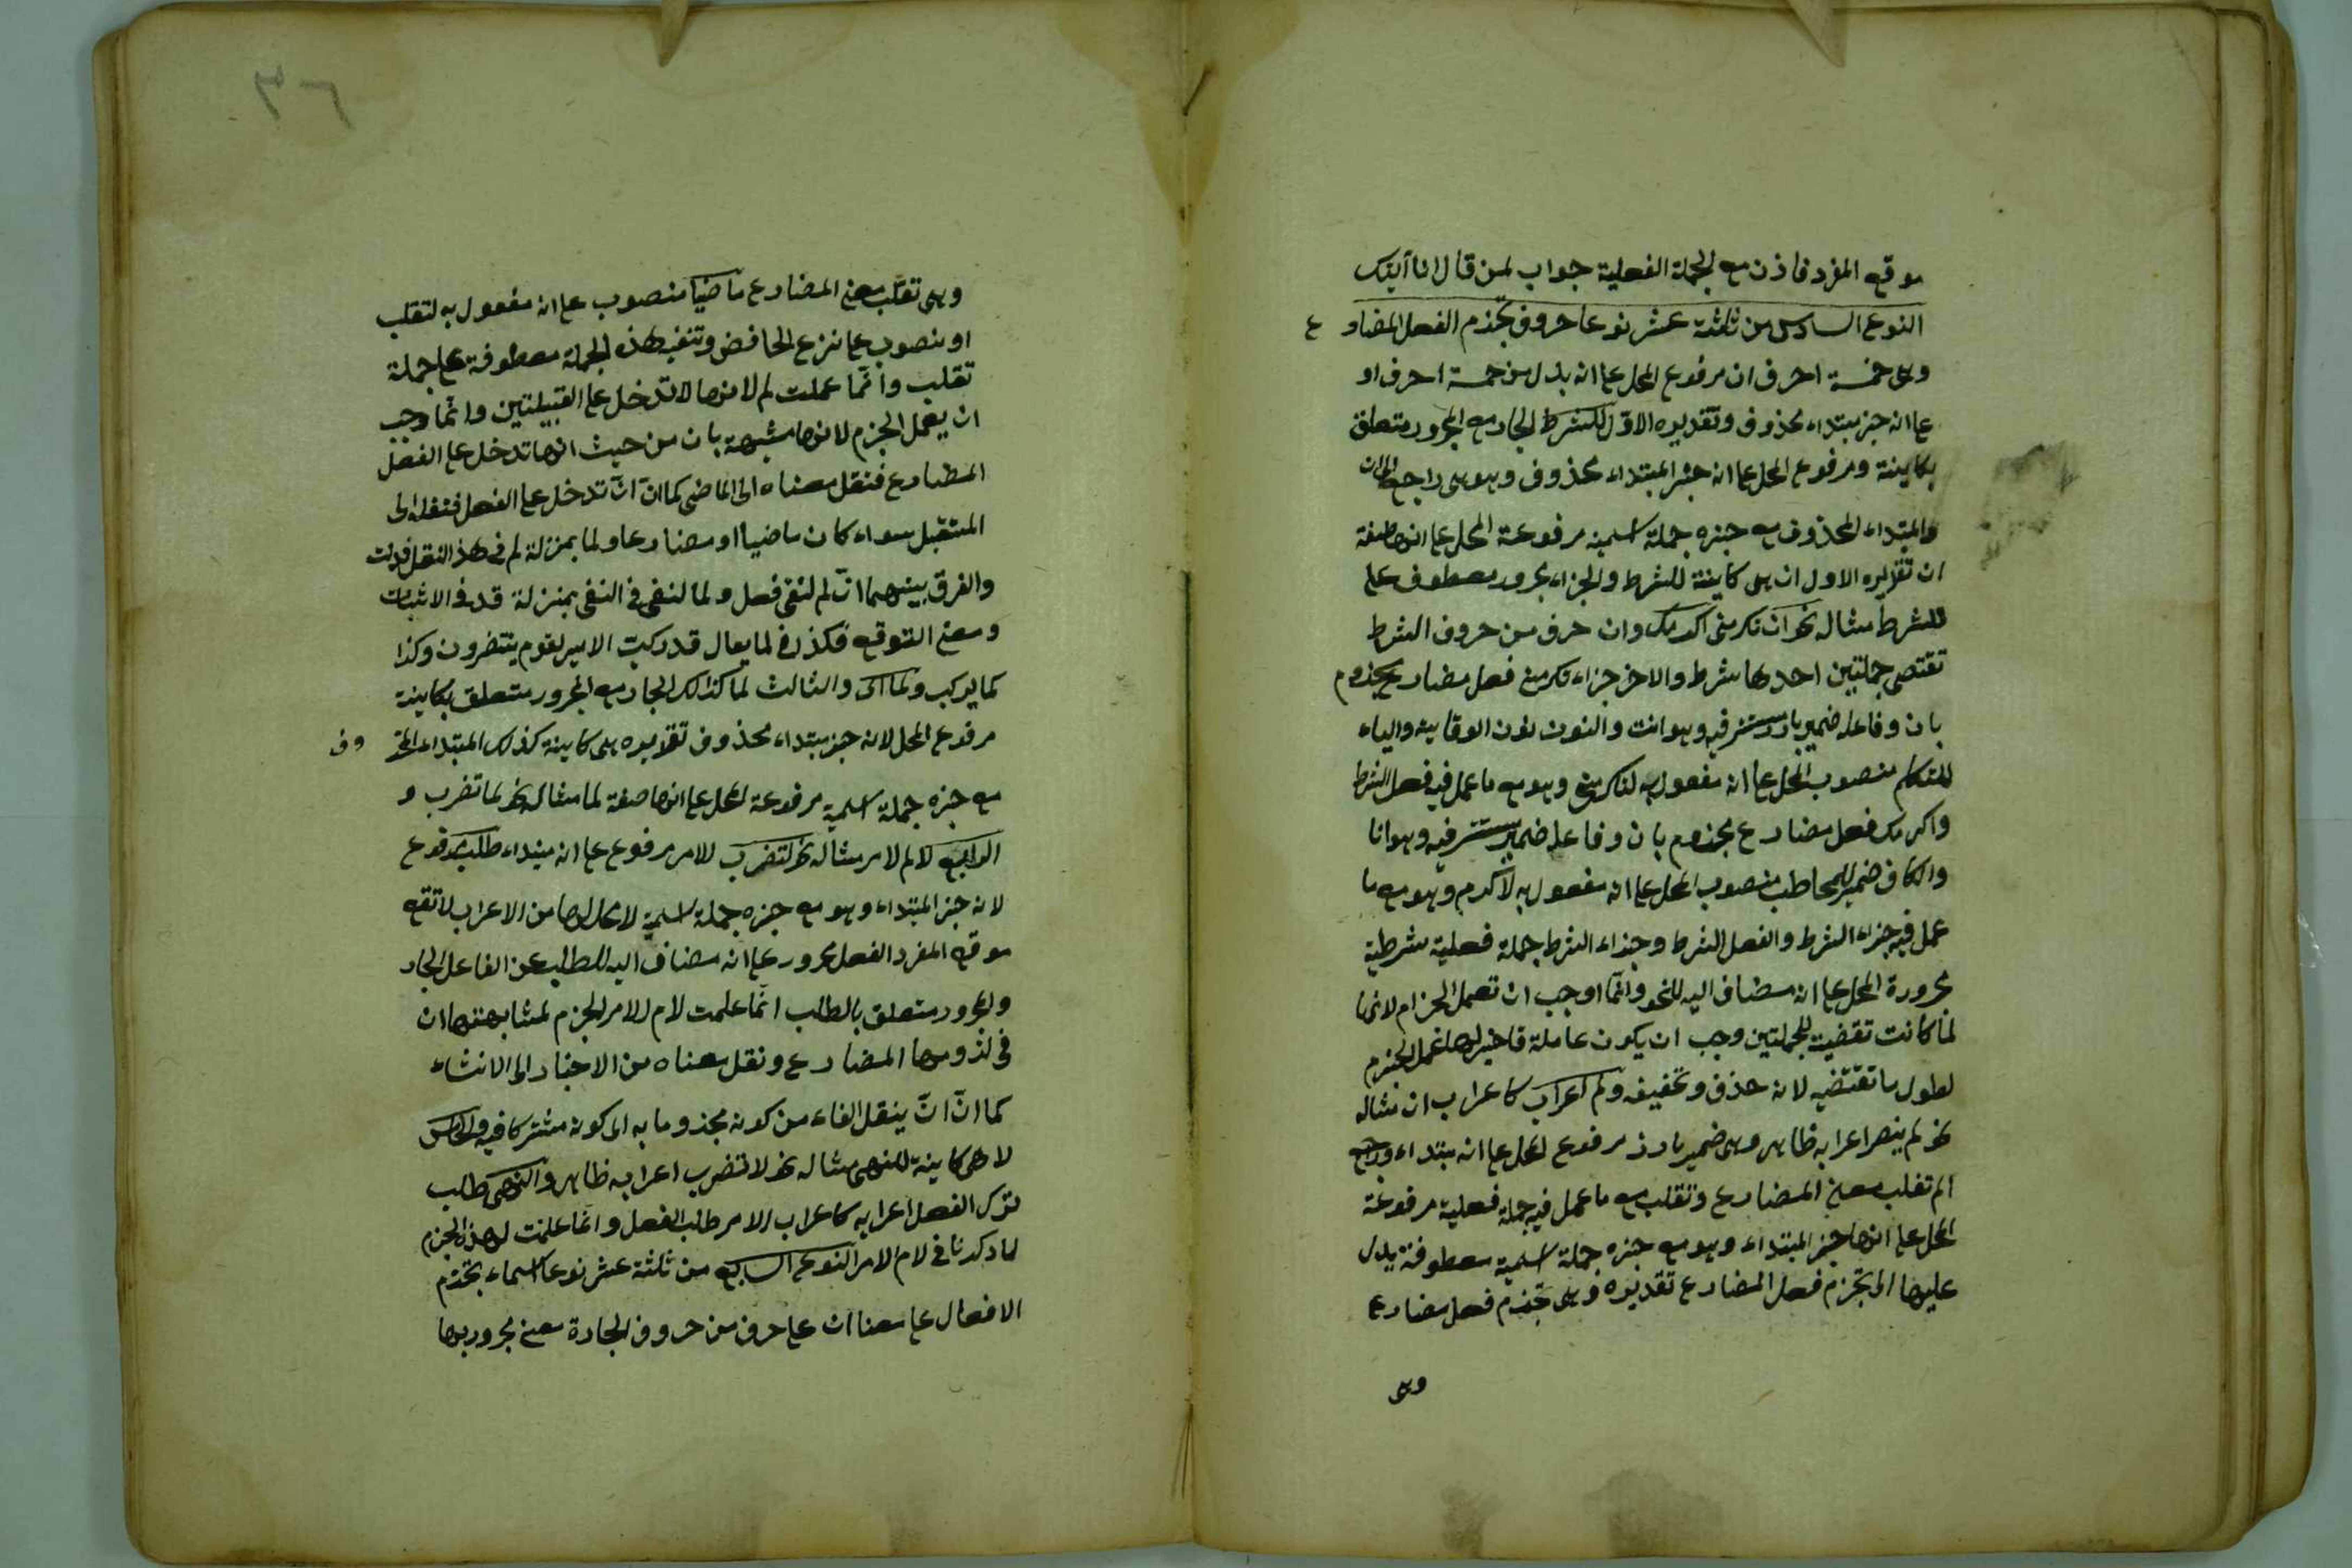 موقع المفرد فاذن مع الجملة الفعلية جواب لمن قال انا آتيك
النوع السادس من ثلثة عشر نوعا حروف تجذم الفعل المضارع
وهى خمسة احرف ان مرفوع المحل على انه بدل من خمسة احرف او
على انه خبر مبتداء محذوف وتقديره الاول للشرط الجار مع المجرور متعلق
بكاينة ومرفوع المحل على انه خبر المبتداء محذوف وهو هى راجع الى ان
والمبتداء المحذوف مع خبره جملة اسمية مرفوعة المحل على انها صفة
ان تقديره الاول ان هى كاينة للشرط والجزاء مجرور معطوف على
للشرط مثاله نحو ان تكرمنى اكرمك وان حرف من حروف الشرط
تقتضى جملتين احدها شرط والاخر جزاء تكرمنى فعل مضارع مجذوم
بان وفاعله ضمير بارز مستتر فيه وهو انت والنون نون الوقاية والياء
للمتكلم منصوب المحل على انه مفعول به لتكرمنى وهو مع ما عمل فيه فعل الشرط
واكرمك فعل مضارع مجذوم بان وفاعله ضمير مستتر فيه وهو انا
والكاف ضمير للمخاطب منصوب المحل على انه مفعول به لاكرم وهو مع ما
عمل فيه جزاء الشرط والفعل الشرط وجزاء الشرط جملة فعلية شرطية
مجرورة المحل على انه مضاف اليه للنحو وانما اوجب ان تعمل الجزم لانها
لما كانت تقضيت للجملتين وجب ان يكون عاملة فاختير لها عمل الجزم
لطول ما تقتضيه لانه حذف وتخفيف ولم اعراب كاعراب ان مثاله
نحو لم ينصر اعرابه ظاهر وهى ضمير بارز مرفوع المحل على انه مبتداء وراجع
الم تقلب معنى المضارع وتقلب مع ما عمل فيه جملة فعلية مرفوعة
المحل على انها خبر المبتداء وهو مع خبره جملة اسمية معطوفة يدل
عليها الى تجزم فعل المضارع تقديره وهى تجذم فعل مضارعا
وهى
٣٦
وهى تقلب معنى المضارع ماضيا منصوب على انه مفعول به لتقلب
او منصوب على نزع الخافض وتنفيه هذه الجملة معطوفة على جملة
تقلب وانما عملت لم لانها لا تدخل على القبيلتين وانما وجب
ان يعمل الجزم لانها مشبهة بان من حيث انها تدخل على الفعل
المضارع فنقل معناه الى الماضى كما ان ان تدخل على الفعل فنقله الى
المستقبل سواء كان ماضيا او مضارعا ولما بمنزلة لم فى هذا النقل
والفرق بينهما ان لم لنفى فعل ولما لنفى فى النفى بمنزلة قد فى الاثبات
ومعنى التوقع فكذ فى لما يقال قد ركب الامير لقوم ينتضرون وكذا
لما يركب ولما اى والثالث لما كذلك الجار مع المجرور متعلق بكاينة
مرفوع المحل لانه خبر مبتداء محذوف تقديره هى كاينة كذلك المبتداء المحذوف
مع خبره جملة اسمية مرفوعة المحل على انها صفة لما مثاله نحو لما تضرب و
الرابع لام لامر مثاله نحو لتضرب للامر مرفوع على انه مبتداء طلب مرفوع
لانه خبر المبتداء وهو مع خبره جملة اسمية لا محل لها من الاعراب لا تقع
موقع المفرد الفعل مجرور على انه مضاف اليه للطلب عن الفاعل الجار
والمجرور متعلق بالطلب انما علمت لام الامر الجزم لمشابهتها ان
فى لزومها المضارع ونقل معناه من الاخبار الى الانشاء
كما ان ان ينقل الفاء من كونه مجذوما به الى كونه مشتركا فيه والخامس
لا هى كاينة للنهى مثاله نحو لا تضرب اعرابه ظاهر والنهى طلب
ترك الفعل اعرابه كاعراب الامر طلب الفعل وانما علمت لهذه الجزم
لما ذكرنا فى لام الامر النوع السابع من ثلثة عشر نوعا اسماء تجذم
الافعال على معنا ان على حرف من حروف الجارة معنى مجرور بها